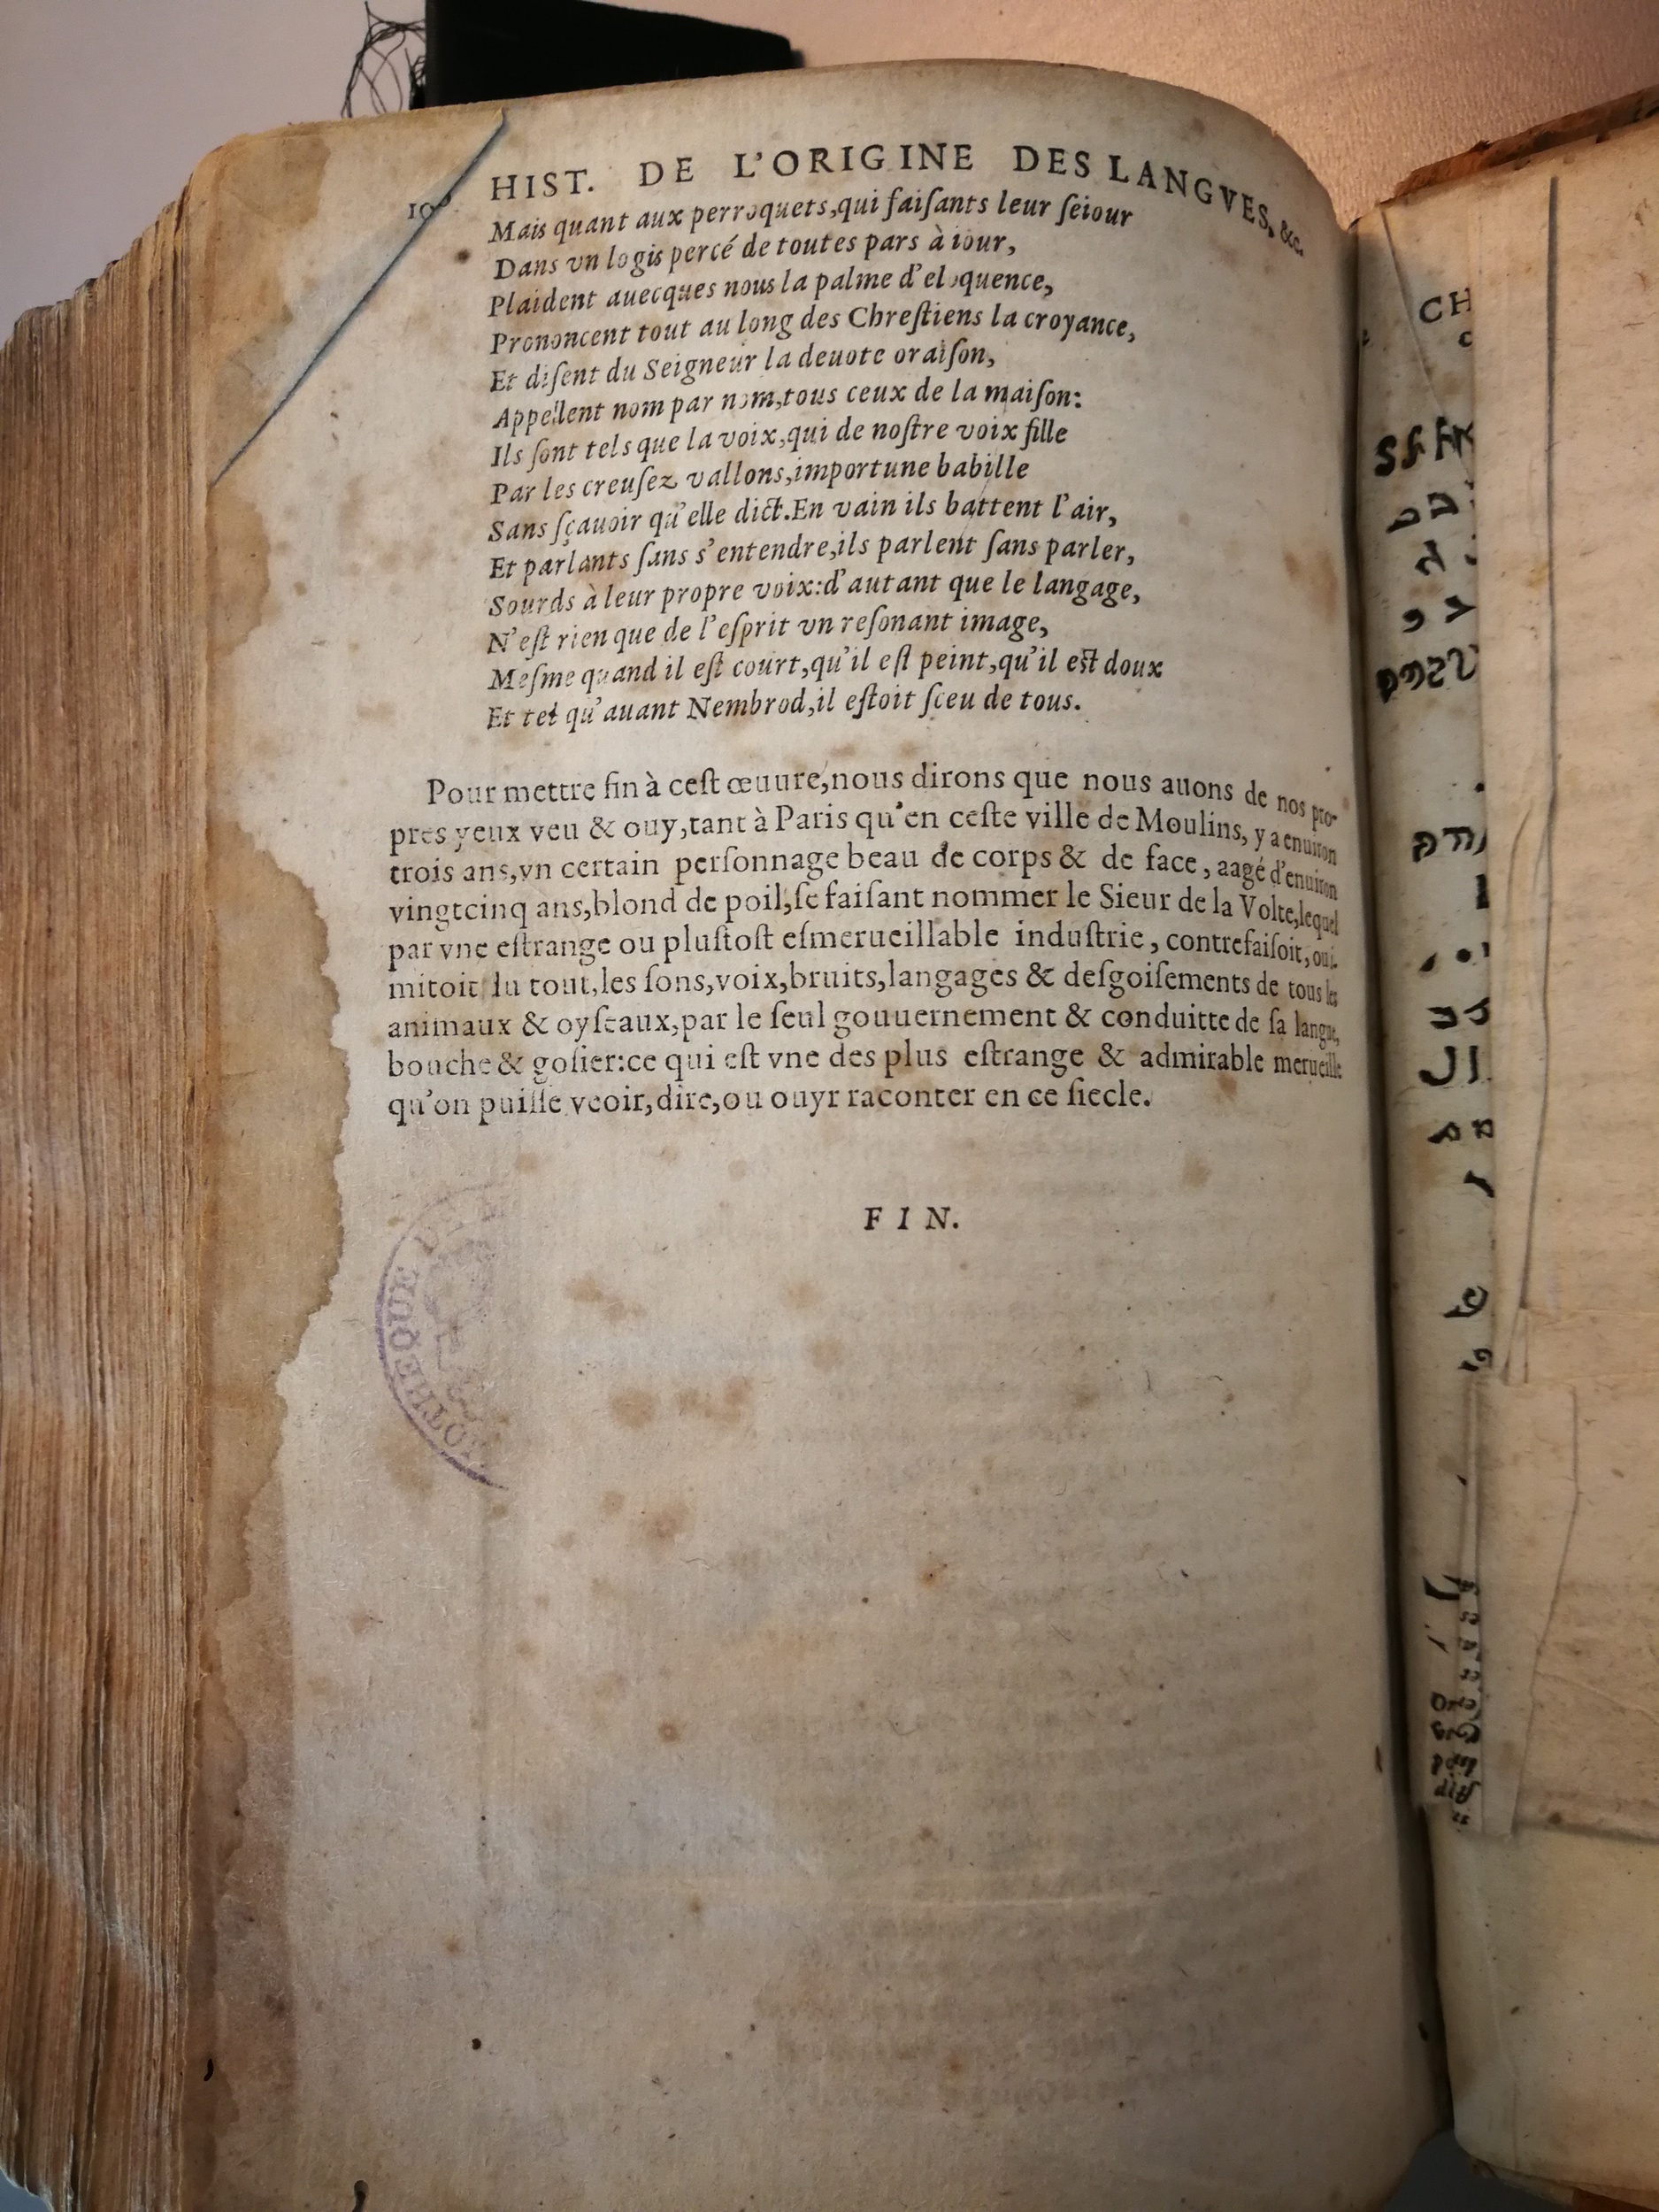 HIST. DE L'ORIGINE DES LANGVES, &c.
Mais quant aux perroquets,qui faiſants leur ſeiour
Dans vn logis percé de toutes pars à iour,
Plaident auecques nous la palme d'eloquence,
Prononcent tout au long des Chreſtiens la croyance,
Et diſent du Seigneur la deuote oraiſon,
Appellent nom par nom,tous ceux de la maiſon:
Ils ſont tels que la voix,qui de noſtre voix fille
Par les creuſez vallons,importune babille
Sans ſçauoir qu'elle dict.En vain ils battent l'air,
Et parlants ſans s'entendre,ils parlent ſans parler,
Sourds à leur propre voix:d'autant que le langage,
N'eſt rien que de l'eſprit vn reſonant image,
Meſme quand il eſt court,qu'il eſt peint,qu'il eſt doux
Et tel qu'auant Nembrod,il eſtoit ſceu de tous.
Pour mettre fin à ceſt œuure,nous dirons que nous auons de nos pro-
pres yeux veu & ouy,tant à Paris qu'en ceſte ville de Moulins, y a enuiron
trois ans,vn certain perſonnage beau de corps & de face, aagé d'enuiron
vingtcinq ans,blond de poil,ſe faiſant nommer le Sieur de la Volte,lequel
par vne eſtrange ou pluſtoſt eſmerueillable induſtrie, contrefaiſoit, ou i-
mitoit du tout,les ſons,voix,bruits,langages & deſgoiſements de tous les
animaux & oyſeaux,par le ſeul gouuernement & conduitte de ſa langue,
bouche & goſier:ce qui eſt vne des plus eſtrange & admirable merueille
qu'on puiſſe veoir,dire,ou ouyr raconter en ce ſiecle.
FIN.